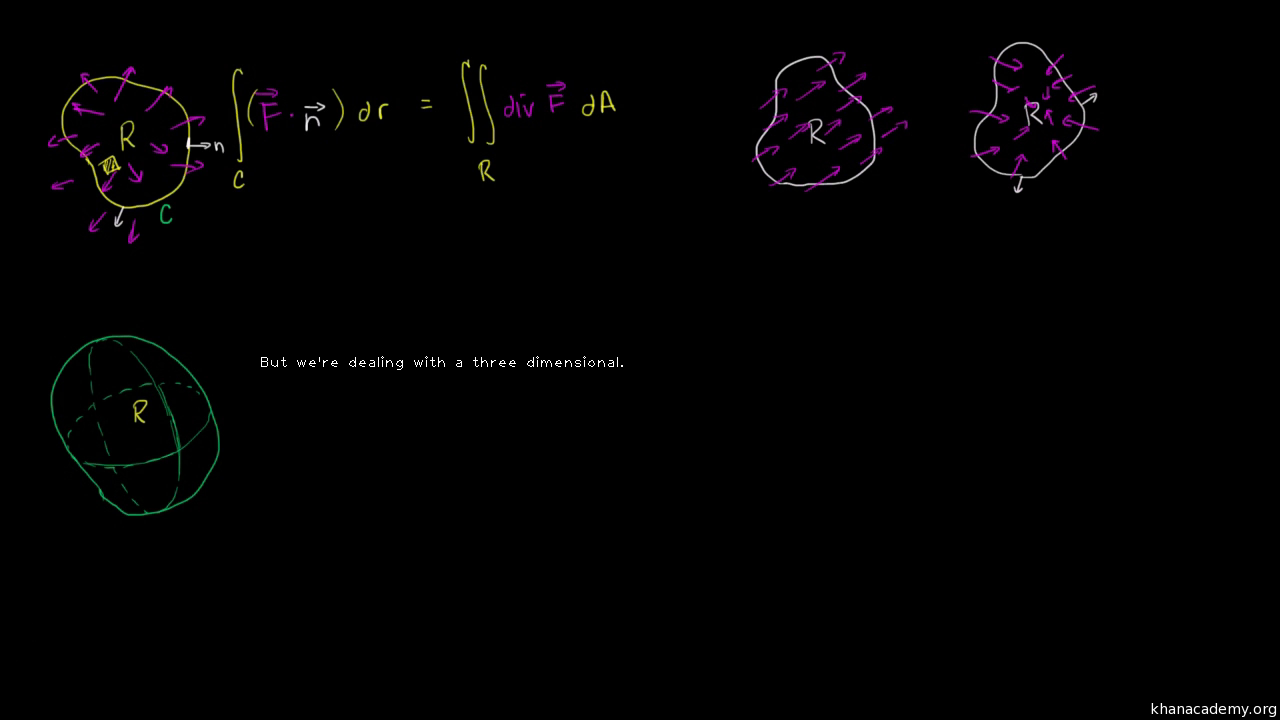 R
n
C
∫_C (F⃗ · n⃗) dr = ∬_R div F⃗ dA
R
R
But we're dealing with a three dimensional.
R
khanacademy.org